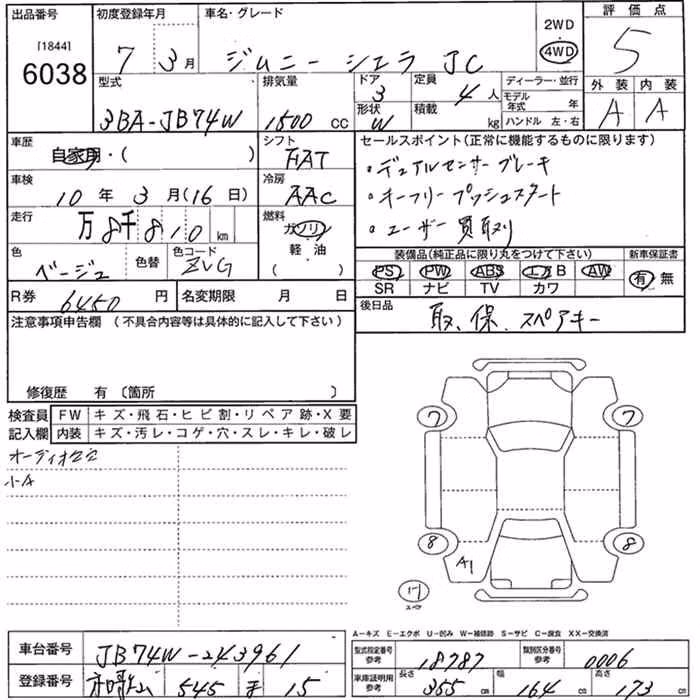 出品番号 初度登録年月 車名・グレード 2WD ・ 4WD 評価点
[1844] 6038 7 3月 ジムニー シエラ JC 5
型式 排気量 ドア 定員 ディーラー・並行 外装 内装
3BA-JB74W 1500 cc 3 4人 モデル年式 年 A A
形状 W 積載 kg ハンドル 左・右
車歴 自家用・( ) シフト FAT
セールスポイント(正常に機能するものに限ります)
・デュアルセンサーブレーキ
車検 10年3月(16日) 冷房 AAC
・キーフリープッシュスタート
走行 万8千810km 燃料 ガソリン 軽・油 ( )
・ユーザー買取り
色 ベージュ 色替 色コード ZVG
装備品(純正品に限り丸をつけて下さい) 新車保証書
PS PW ABS エアB AW 有・無
SR ナビ TV カワ
R券 6450円 名変期限 月 日
後日品 取、保、スペアキー
注意事項申告欄 (不具合内容等は具体的に記入して下さい)
修復歴 有 〔箇所 〕
検査員記入欄 FW キズ・飛石・ヒビ割・リペア跡・X要
内装 キズ・汚レ・コゲ・穴・スレ・キレ・破レ
オーディオ
小A
7 7
8 8
A1
17
スペア
A-キズ E-エクボ U-凹み W-補修跡 S-サビ C-腐食 XX-交換済
車台番号 JB74W-243961
型式指定番号 参考 18787 類別区分番号 参考 0006
登録番号 545 15
車庫証明用 参考 長さ 355cm 幅 164cm 高さ 173cm